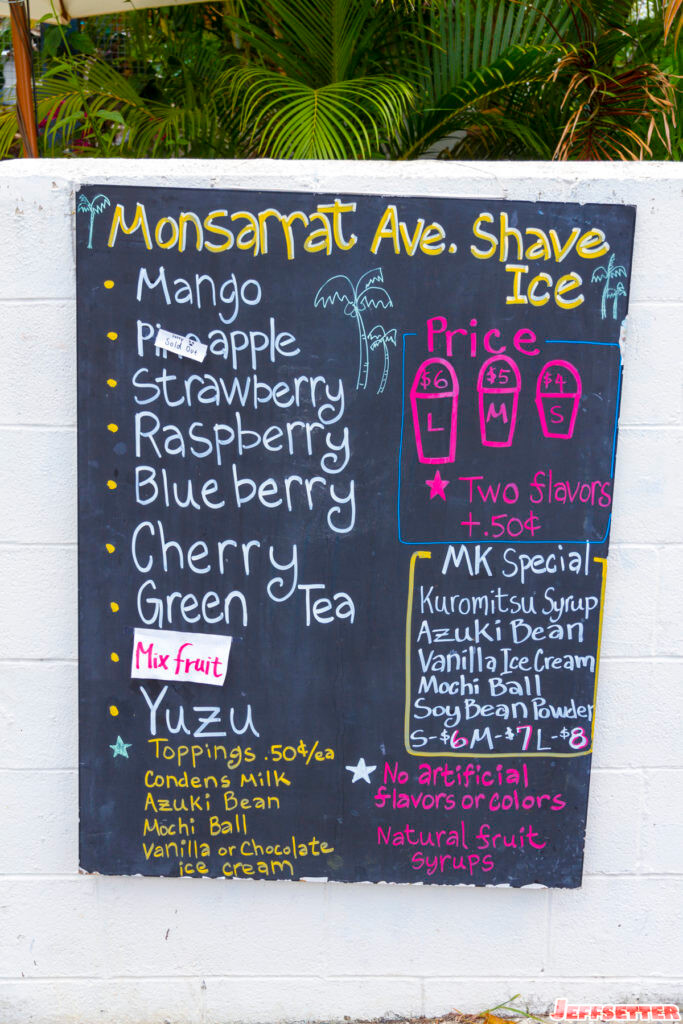 Monsarrat Ave. Shave
Ice
Mango
Pineapple
Sold Out
Strawberry
Raspberry
Blueberry
Cherry
Green Tea
Mix fruit
Yuzu
Toppings .50¢/ea
Condens Milk
Azuki Bean
Mochi Ball
Vanilla or Chocolate
ice cream
Price
$6 $5 $4
L M S
Two flavors
+.50¢
MK Special
Kuromitsu Syrup
Azuki Bean
Vanilla Ice Cream
Mochi Ball
Soy Bean Powder
S-$6 M-$7 L-$8
No artificial
flavors or colors
Natural fruit
syrups
JEFFSETTER